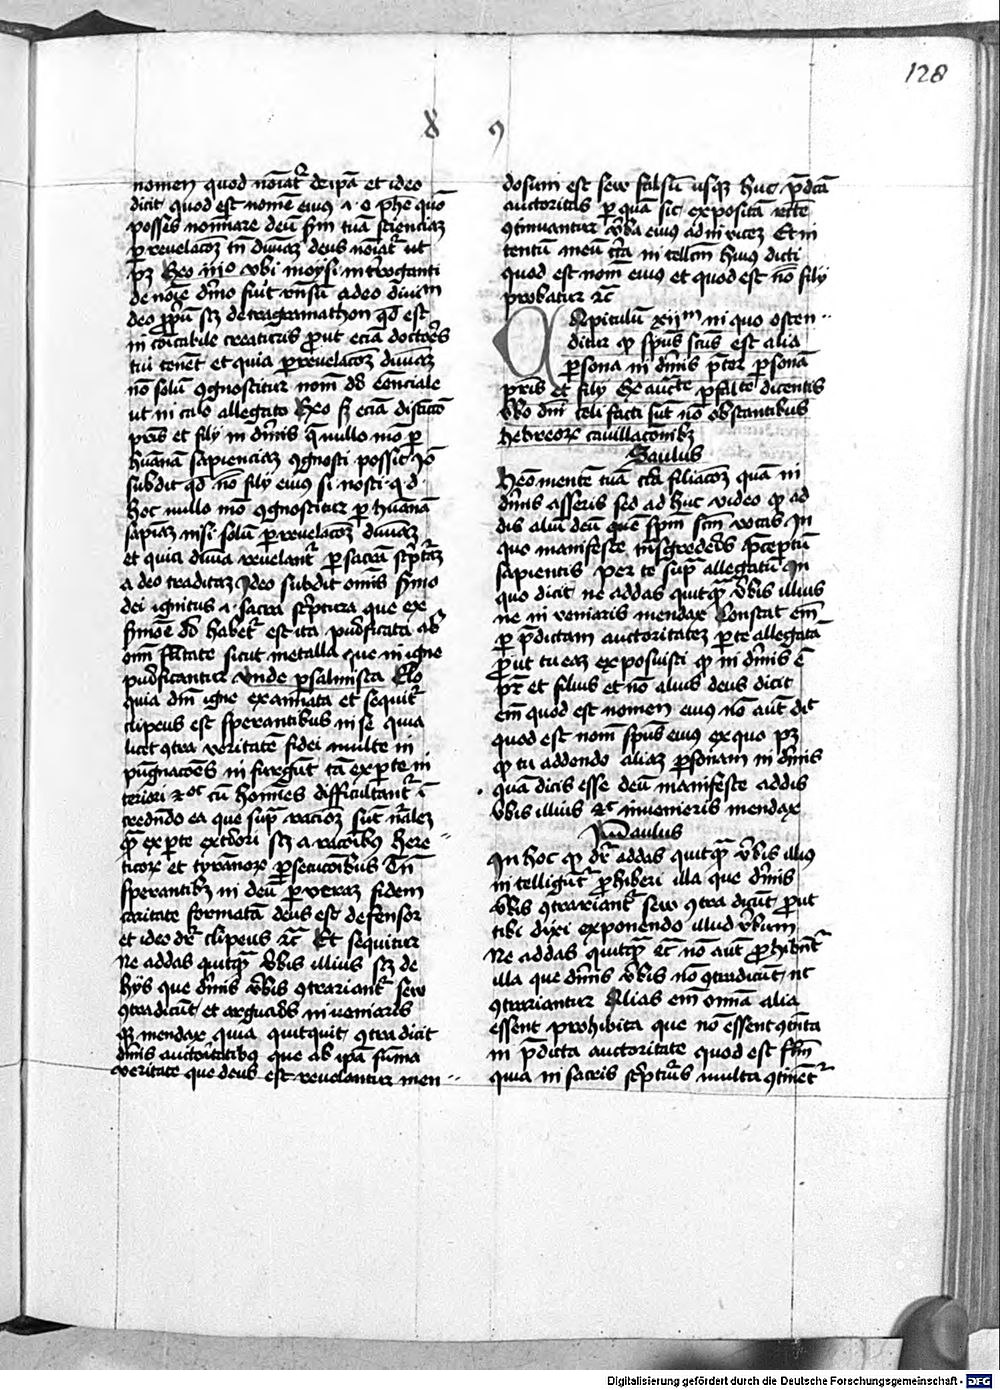 128
8 9
nomen quod no͞iat᷑ de ip̄a et ideo
dicit quod est nomē eius .i. o ph̄e quō
posses no͞mīare deū s͞m tuā scienciaꝫ
ꝑ reuelac͞oꝫ tn̄ diuinaꝫ deus no͞iat᷑ ut
pꝫ Exo iiiᵒ vbi moysi interroganti
de no͞ie diui͞o fuit rn̄sū a deo diuinū
deo ꝓpriū scꝫ detragramathon qd̄ est
in co͞icabile creaturis ꝓut eciā doctores
tui tenēt et quia ꝑ reuelac͞oꝫ diuinaꝫ
nō solū ꝯgnoscitur nom̄ dei essenciale
ut in ca͞lo allegato Exo sꝫ eciā distinctō
pr̄is et filij in diuinis q̄ nullo mō ꝑ
humanā sapienciaꝫ ꝯgnosci possit iō
subdit qd̄ nō filij eius si nosti q. d.
hoc nullo mō ꝯgnoscitur ꝑ humanā
sapiaꝫ nisi solū ꝑ reuelac͞oꝫ diuinaꝫ
et quia diuina reuelant᷑ ꝑ sacrā sc͞pturaꝫ
a deo traditaꝫ Ideo subdit omnis s͞mo
dei ignitus .i. sacra scͥptura que ex
s͞mōe dei habet᷑ est ita purificata ab
omni falsitate sicut metalla que in igne
purificantur vnde psalmista Elo
quia dn̄i igne examinata et sequit᷑
clipeus est sperantibus in se quia
licet ꝯtra veritatē fidei multe in
pugnac͞oes in surgūt tā ex ꝑte in
teriori eo cū homines difficultant᷑ ī
credendo ea que sup̄ rac͞oeꝫ sūt n͞aleꝫ
qͣ ex ꝑte ext͛iori scꝫ a rac͞oibꝰ here
ticoꝝ et tyrānoꝝ ꝑsecuc͞oibus Tn̄
sperantibꝫ in deū ꝑ veraꝫ fidem
caritate formatā deus est defensor
et ideo dr̄ clipeus ⁊c̄ Et sequitur
Ne addas quitqͣ v͛bis illius scꝫ de
hijs que diuinis v͛bis ꝯtrariant᷑ seu
ꝯtradicūt et arguaris in ueniaris
qꝫ mendax quia quitquit ꝯtra dicit
diuinis auctoritatibꝰ que ab ip̄a sūma
veritate que deus est reuelantur men
dosum est seu falsū usqꝫ huc p̄dcā
auctoritas ꝑ quā sic expositā recte
ꝯtinuantur v͛ba eius ad inuiceꝫ Et in
tentū meū circa intellc̄m huius dicti
quod est nom̄ eius et quod est nō filij
probatur ⁊c̄
Capitulū xiiᵐ in quo osten
ditur qꝫ spūs sc̄us est alia
ꝑsona in diuinis p̄ter ꝑsonā
pr̄is et filij Ex aucte ꝑsalte dicentis
v͛bo dn̄i celi facti sūt nō obstantibus
hebreoꝝ cauillac͞oibꝫ
Saulus
Habeo mente tuā circa filiac͞oꝫ quā in
diuinis asseris sed ad huc video qꝫ ad
dis aliū deū quē spm̄ sc̄m vocas In
quo manifeste transgrederis p̄ceptū
sapientis per te sup̄ allegatū In
quo dicit ne addas quitqͣ v͛bis illius
ne in veniaris mendax Constat eni͞
ꝑ p̄dictam auctoritateꝫ ꝑ te allegatā
ꝓut tu eaꝫ exposuisti qꝫ in diuinis ē
pr̄ et filius et nō alius deus dicit
eni͞ quod est nomen eius nō aūt dicit
quod est nom̄ spūs eius ex quo pꝫ
qꝫ tu addendo aliaꝫ ꝑsonam in diuinis
quā dicis esse deū manifeste addis
v͛bis illius ⁊c̄ inuenieris mendax
Paulus
In hoc qꝫ dr̄ addas quitqͣ v͛bis illiꝰ
intelligūt᷑ ꝓhiberi illa que diuinis
v͛bis ꝯtrariant᷑ seu ꝯtra dicūt ꝓut
tibi dixi exponendo illud v͛bum
Ne addas quitqͣ ⁊c̄ nō aūt ꝓhibent᷑
illa que diuinis v͛bis nō ꝯtradicūt nc̄
ꝯtrariantur Alias eni͞ omnia alia
essent prohibita que nō essent ꝯtēta
in p̄dicta auctoritate quod est fl̄m
quia in sacris scͥpturis multa ꝯtinēt᷑
Digitalisierung gefördert durch die Deutsche Forschungsgemeinschaft - DFG